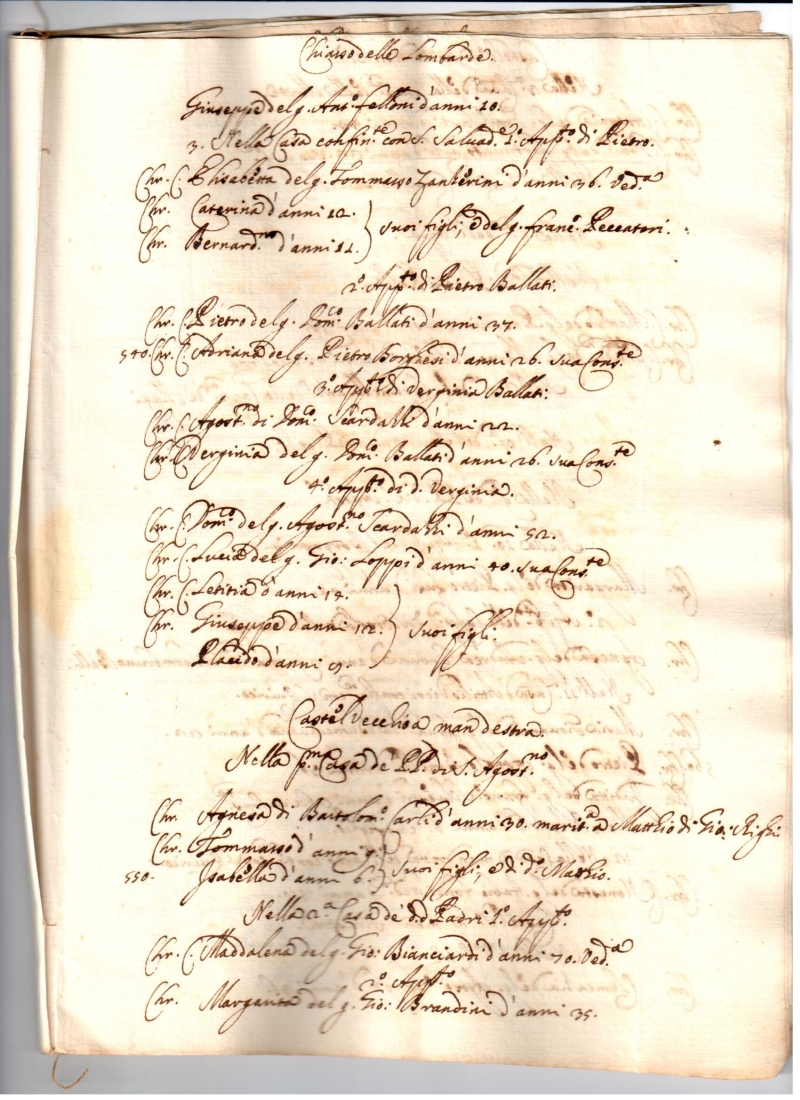 Chiasso delle Lombarde.
Giuseppe del q. Ant.o felloni d'anni 10.
3. Nella Casa confin.te con S. Salvad.e 1.o App.to di Pietro.
Chr. C. Elisabetta del q. Tommasso Zanherini d'anni 36. Ved.a
Chr. Caterina d'anni 12. } suoi figli, e del q. franc.o Peccatori.
Chr. Bernard.no d'anni 11.
2.o App.to di Pietro Ballati.
Chr. C. Pietro del q. Dom.co Ballati d'anni 37.
540. Chr. C. Adriana del q. Pietro Borghesi d'anni 26. sua Cons.te
3.o App.to di Verginia Ballati.
Chr. C. Agost.no di Dom.co Scardazzi d'anni 22.
Chr. C. Verginia del q. Dom.co Ballati d'anni 26. sua Cons.te
4.o App.to di d. Verginia.
Chr. C. Dom.co del q. Agost.no Scardazzi d'anni 52.
Chr. C. Lucia del q. Gio: Loppi d'anni 40. sua Cons.te
Chr. C. Letitia d'anni 14.
Chr. Giuseppe d'anni 12. } suoi figli.
Placido d'anni 9.
Castel Vecchio a man destra.
Nella p.ma Casa de PP. di S. Agost.no
Chr. Agnesa di Bartolom.o Carli d'anni 30. marit.a a Matthio di Gio: Righi
Chr. Tommasso d'anni 9.
550. Isabella d'anni 6. } suoi figli, e di d.o Matthio.
Nella 2.a Casa de d.d Padri 1.o App.to
Chr. C. Maddalena del q. Gio: Bianciardi d'anni 70. Ved.a
2.o App.to
Chr. Margarita del q. Gio: Brandini d'anni 35.